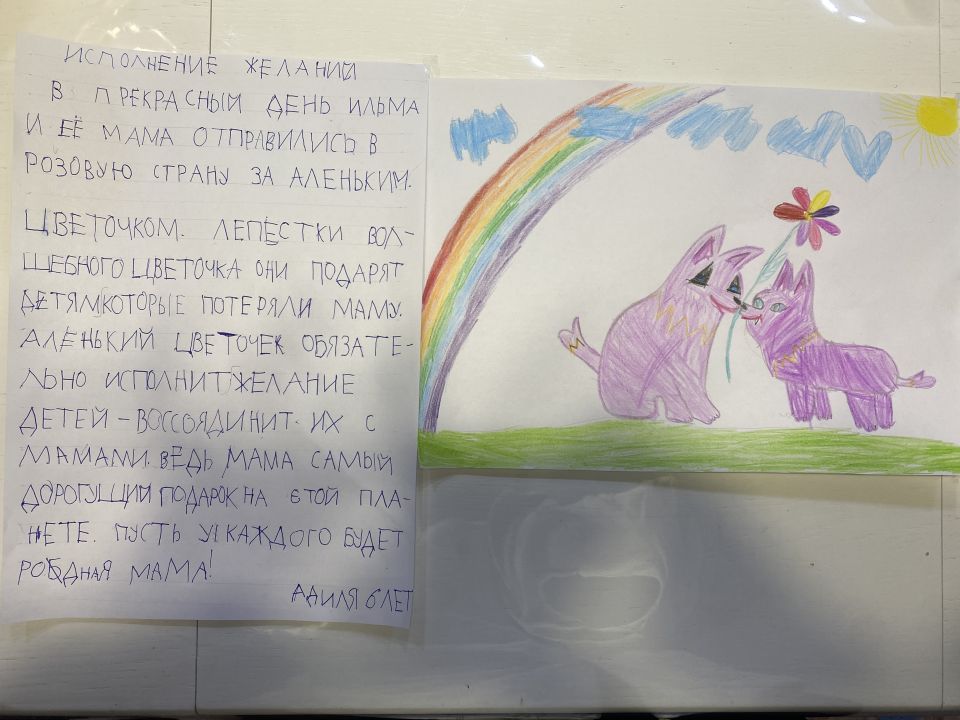 ИСПОЛНЕНИЕ ЖЕЛАНИЙ
В ПРЕКРАСНЫЙ ДЕНЬ ИЛЬМА
И ЕЁ МАМА ОТПРАВИЛИСЬ В
РОЗОВУЮ СТРАНУ ЗА АЛЕНЬКИМ.
ЦВЕТОЧКОМ. ЛЕПЁСТКИ ВОЛ-
ШЕБНОГО ЦВЕТОЧКА ОНИ ПОДАРЯТ
ДЕТЯМ,КОТОРЫЕ ПОТЕРЯЛИ МАМУ.
АЛЕНЬКИЙ ЦВЕТОЧЕК ОБЯЗАТЕ-
ЛЬНО ИСПОЛНИТ ЖЕЛАНИЕ
ДЕТЕЙ – ВОССОЯДИНИТ. ИХ С
МАМАМИ. ВЕДЬ МАМА САМЫЙ
ДОРОГУЩИЙ ПОДАРОК НА ЄТОЙ ПЛА-
НЕТЕ. ПУСТЬ У КАЖДОГО БУДЕТ
РОДНАЯ МАМА!
АДИЛЯ 6 ЛЕТ